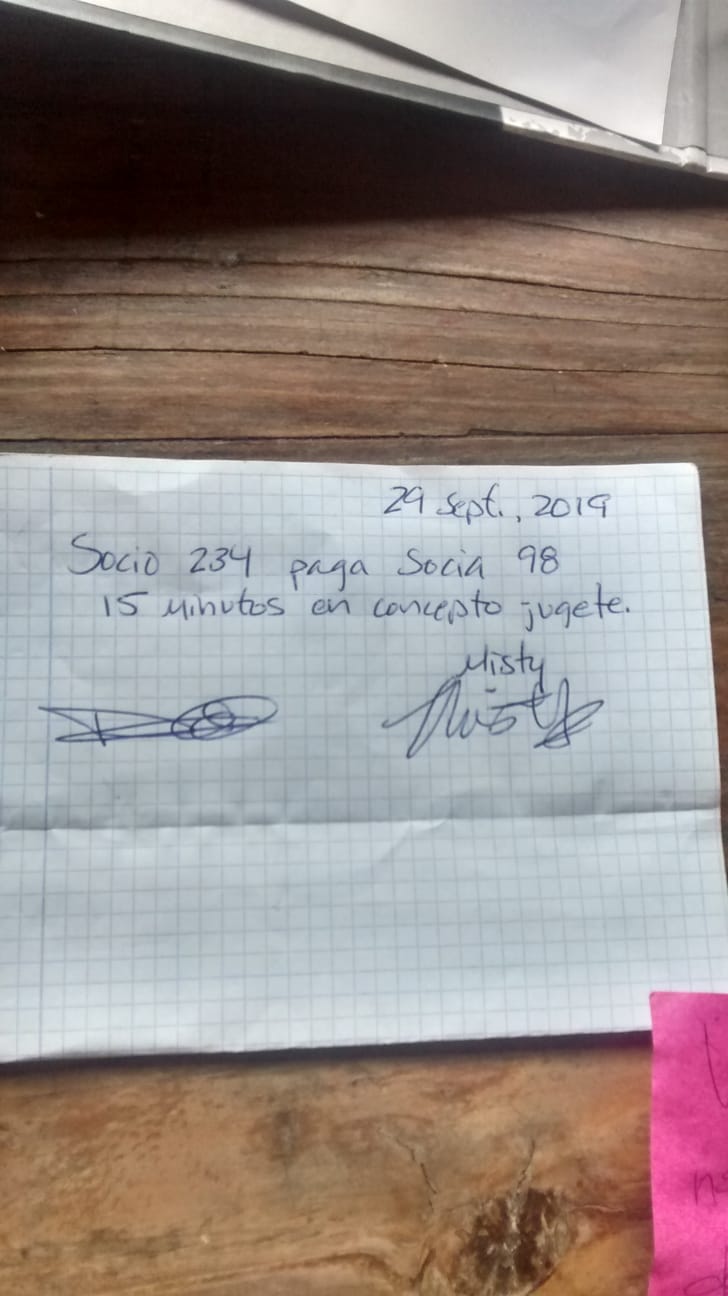 29 Sept., 2019
Socio 234 paga Socia 98
15 minutos en concepto jugete.
Misty
Misty